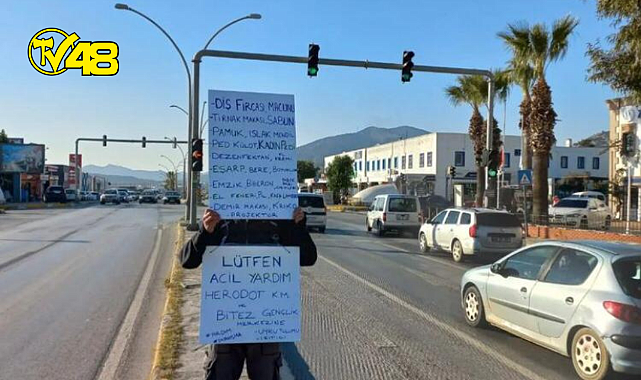 TV48
-DİŞ FIRÇASI, MACUNU
-TIRNAK MAKASI, SABUN
PAMUK, ISLAK MENDİL
PED KÜLOT, KADIN PEDİ
DEZENFEKTAN,
EŞARP, BERE,
EMZİK, BİBERON
-EL FENERİ, PİL,
-DEMİR MAKASI, KRİKO
-PROJEKTÖR
LÜTFEN
ACİL YARDIM
HERODOT KM.
ve
BİTEZ GENÇLİK
MERKEZİNE